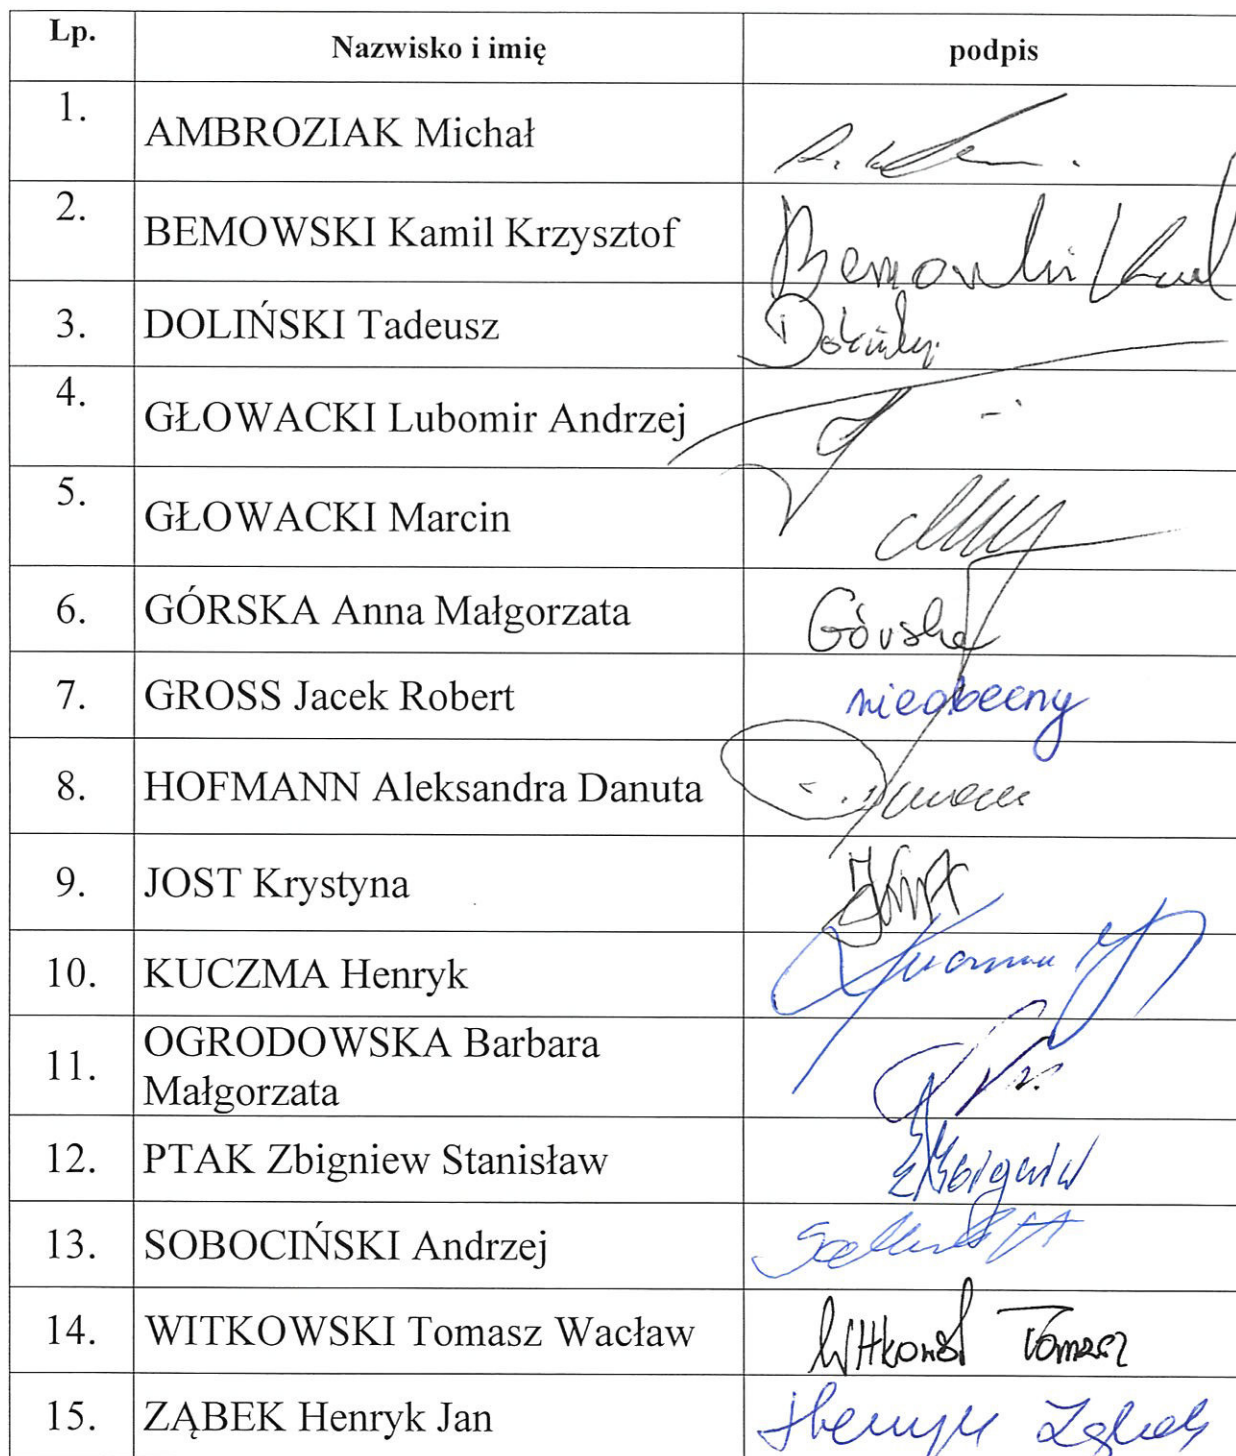 Lp. Nazwisko i imię podpis
1. AMBROZIAK Michał
2. BEMOWSKI Kamil Krzysztof Bemowski Kamil
3. DOLIŃSKI Tadeusz Doliński
4. GŁOWACKI Lubomir Andrzej
5. GŁOWACKI Marcin
6. GÓRSKA Anna Małgorzata Górska
7. GROSS Jacek Robert nieobecny
8. HOFMANN Aleksandra Danuta
9. JOST Krystyna
10. KUCZMA Henryk
11. OGRODOWSKA Barbara
Małgorzata
12. PTAK Zbigniew Stanisław
13. SOBOCIŃSKI Andrzej
14. WITKOWSKI Tomasz Wacław Witkowski Tomasz
15. ZĄBEK Henryk Jan Henryk Ząbek